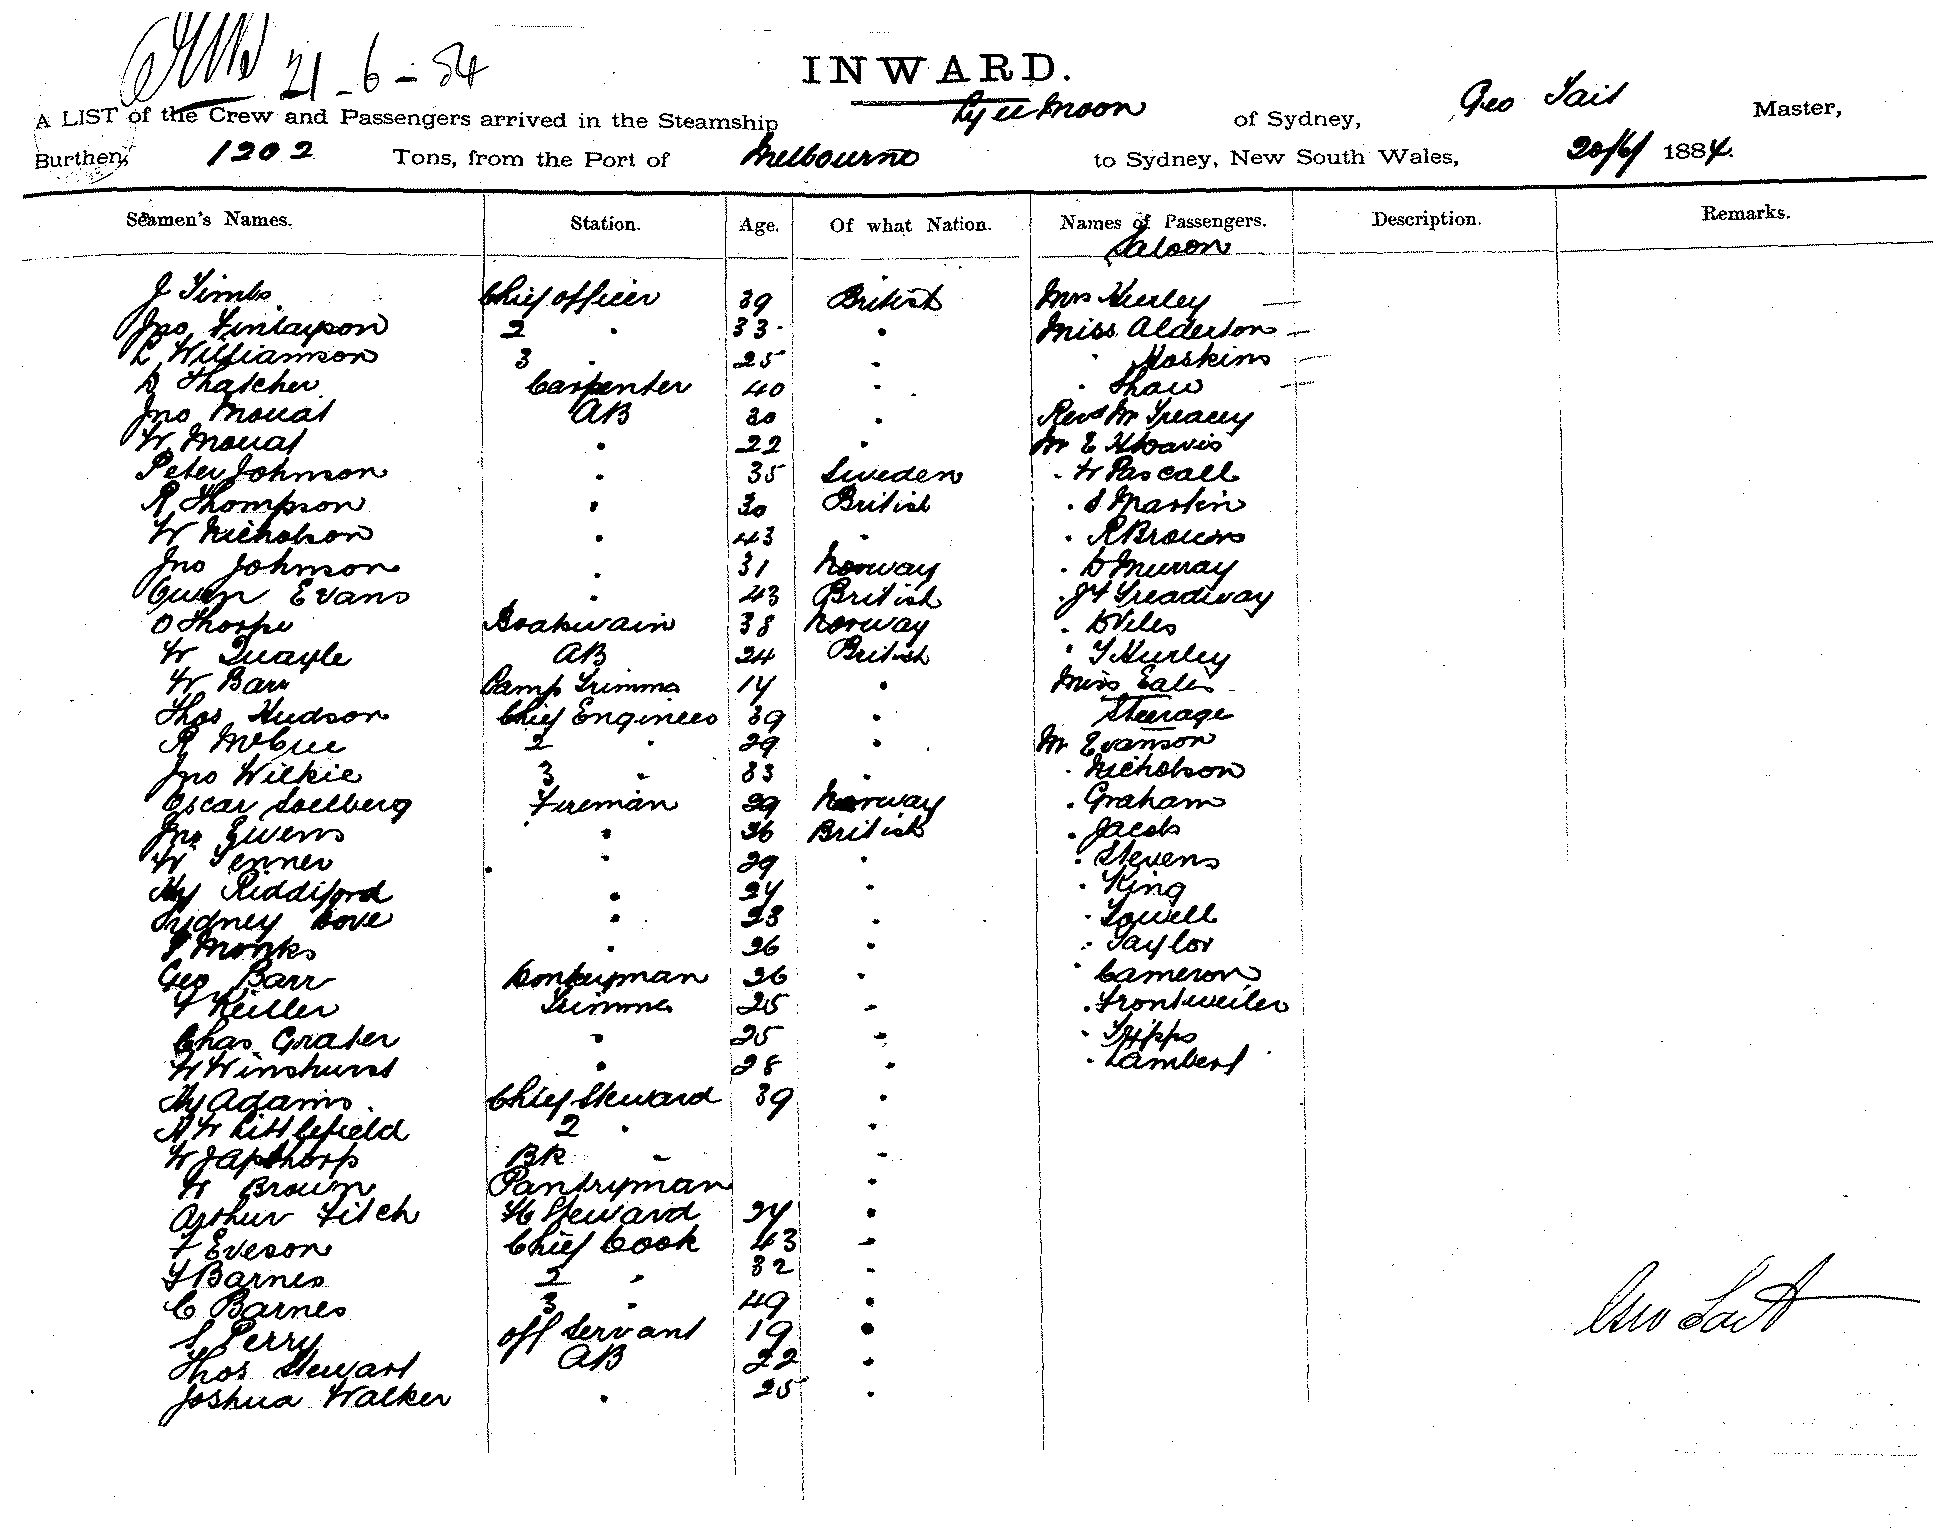 21-6-84
INWARD.
A LIST of the Crew and Passengers arrived in the Steamship Ly ee Moon of Sydney, Geo Tait Master,
Burthen, 1202 Tons, from the Port of Melbourne to Sydney, New South Wales, 20/6/ 1884.
Seamen's Names. Station. Age. Of what Nation. Names of Passengers. Description. Remarks.
Saloon
J Timbs Chief officer 39 British Mrs Hurley
Jno Finlayson 2 " 33 " Miss Alderton
L Williamson 3 " 25 " " Hoskins
D Thatcher Carpenter 40 " " Shaw
Jno Mouat AB 30 " Revd Mr Treacey
W Mouat " 22 " Mr E H Davis
Peter Johnson " 35 Sweden " W Pascall
R Thompson " 30 British " S Martin
W Nicholson " 43 " " R Brown
Jno Johnson " 31 Norway " D Murray
Owen Evans " 43 British " J F Treadway
O Thorpe Boatswain 38 Norway " D Viles
W Quayle AB 24 British " T Hurley
W Barr Lamp Trimmer 17 " Miss Eales
Thos Hudson Chief Engineer 39 " Steerage
R McCue 2 " 29 " Mr Evanson
Jno Wilkie 3 " 33 " " Nicholson
Oscar Soelberg Fireman 29 Norway " Graham
Jno Ewens " 36 British " Jacob
W Tenner " 29 " " Stevens
Hy Riddiford " 27 " " King
Sydney Cove " 23 " " Lowell
P Monks " 26 " " Taylor
Geo Barr Donkeyman 36 " " Cameron
F Keiller Trimmer 25 " " Frontweiler
Chas Grater " 25 " " Tripps
W Winshurst " 28 " " Lambert
Hy Adams Chief Steward 39 "
A W Littlefield 2 " "
W J Apthorp BR " "
W Brown Pantryman "
Arthur Fitch FC Steward 27 "
F Eveson Chief Cook 43 "
T Barnes 2 " 32 "
C Barnes 3 " 49 "
S Perry off Servant 19 "
Thos Stewart AB 22 "
Joshua Walker " 25 "
Geo Tait